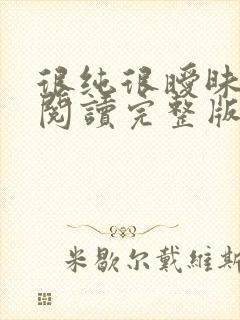 很纯很曖昧
閱讀完整版
米歇尔戴維斯